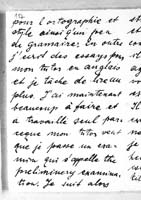 154
pour l'ortographie et
style ainsi qu'un peu
de gramaire. En outre
j'écrit des essays pour
mon tutor en anglais
et je tâche de lire au
plus. J'ai maintenant
beaucoup à faire et
à travaille seul par-
ceque mon tutor veut
que je passe un exa-
min qui s'appelle the
preliminery examina-
tion. Je suit alors